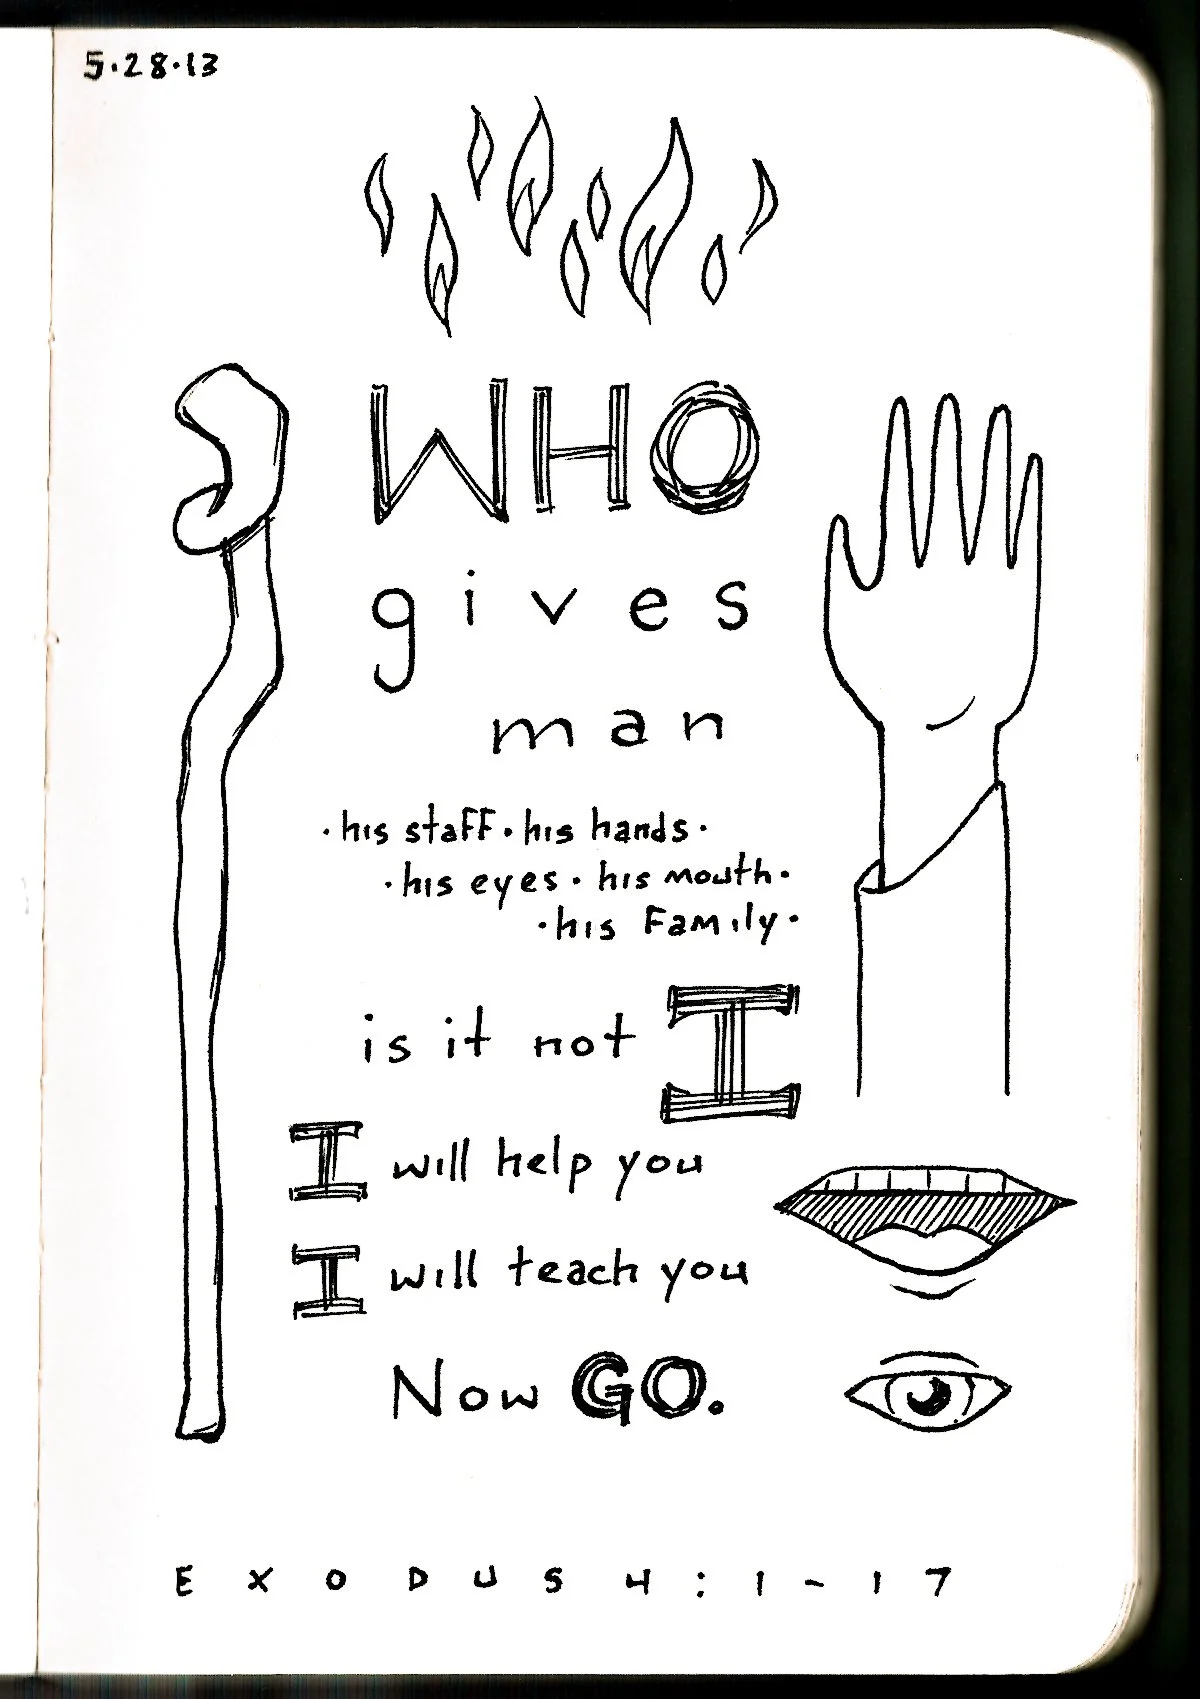 5·28·13
WHO
gives
man
·his staff·his hands·
·his eyes·his mouth·
·his Family·
is it not I
I will help you
I will teach you
Now GO.
EXODUS 4:1-17